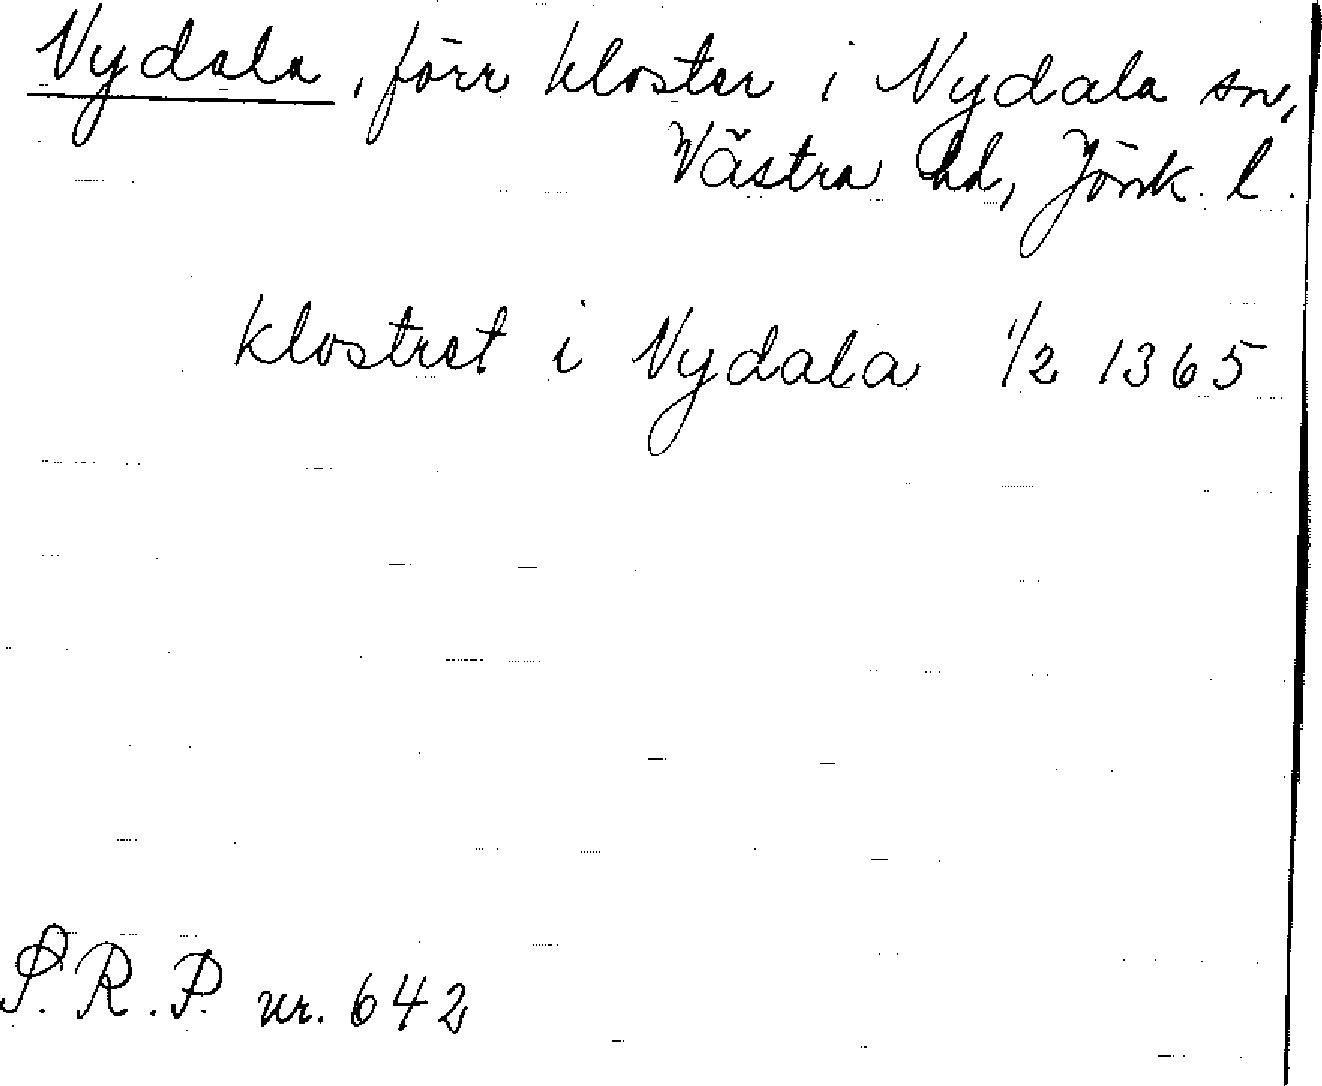 Nydala, förr kloster i Nydala sn,
Västra hd, Jönk. l.
klostret i Nydala 1/2 1365
S.R.P. nr. 642